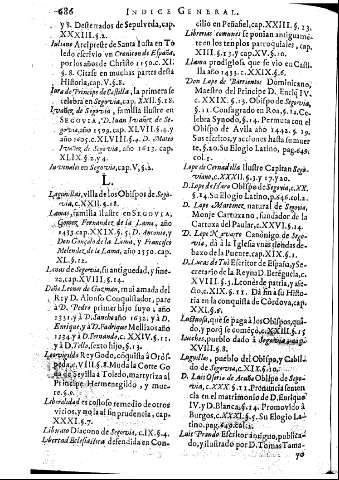 686 INDICE GENERAL.
y 8. Desterrados de Sepulveda, cap.
XXXIII.§.2.
Iuliano Arcipreste de Santa Iusta en To
ledo escrivio en Cronicas de España,
por los años de Christo 1150.c.XI.
§.8. Citase en muchas partes desta
Historia, cap. V.§.8.
Iura de Principe de Castilla, la primera se
celebra en Segovia, cap. XXII.§.18.
Ivañez de Segovia, familia ilustre en
SEGOVIA, D. Iuan Ivañez de Se-
govia, año 1599. cap. XLVII.§.4. y
año 1605.c.XLVIII.§.4. D. Mateo
Ivañez de Segovia, año 1613. cap.
XLIX.§.2.y 4.
Iuvenales en Segovia, cap. V. §.2.
L.
Lagunillas, villa de los Obispos de Sego-
via, c.XXII.§.18.
Lamas, familia ilustre en SEGOVIA,
Gomez Fernandez de la Lama, año
1433.cap.XXIX.§.5. D. Antonio, y
Don Gonçalo de la Lama, y Francisco
Melendez de la Lama, año 1550. cap.
XL.§.12.
Lanas de Segovia, su antiguedad, y fine-
za, cap. XVIII.§.14.
Doña Leonor de Guzman, mui amada del
Rey D. Alonso Conquistador, pare
à D. Pedro primer hijo suyo, año
1331. y à D. Sancho año 1632. y à D.
Enrique, y à D. Fadrique Mellizos año
1334 y à D. Fernando, c.XXIV.§.11.
y à D. Tello, sexto hijo, §.13.
Leovigildo Rey Godo, cóquista à Oros-
peda, c.VIII.§.8. Muda la Corte Go
da de Sevilla a Toledo, martyriza al
Principe Hermenegildo, y mue-
re. §.9.
Liberalidad es costoso remedio de otros
vicios, y no la al sin prudencia, cap.
XXXI.§.7.
Liberato Diacono de Segovia, c.IX.§.4.
Libertad Eclesiastica defendida en Con-
cilio en Peñafiel, cap. XXIII. §. 13.
Librerias comunes se ponian antiguamé-
te en los templos parroquiales, cap.
XIII.§.13. y cap. XV.§.10.
Llama prodigiosa que se vio en Casti-
lla año 1433. c.XXIX.§.6.
Don Lope de Barrientos Dominicano,
Maestro del Principe D. Enriq IV.
c. XXIX. §.13. Obispo de Segovia,
§.11. Consagrado en Roa, §.12. Ce-
lebra Synodo, §.14. Permuta con el
Obispo de Avila año 1442. §.19.
Sus escritos, y acciones hasta su muer
te, §.20. Su Elogio Latino, pag. 649.
col.1.
Lope de Cernadilla Ilustre Capitan Sego-
viano c.XXXII.§.3. y 17.y 20.
D. Lope de Haro Obispo de Segovia, c.XX.
§.14. Su Elogio Latino, p.646.col.2.
D. Lope Martinez natural de Segovia,
Monje Cartuxano, fundador de la
Cartuxa del Paular, c.XXVI.§.14.
D. Lope de Canonigo de Sego-
via, dá à la Iglesia vnas tiendas de-
baxo de la Puente, cap.XIX.§.1.
D. Lucas de Tui Escritor de España, y Se-
cretario de la Reyna D. Beréguela, c.
XVIII.§.3. Leonés de patria, y año-
so, c.XIX.§.11. Dá fin à su Histo-
ria en la conquista de Cordova, cap.
XX.§.6.
Luctuosa, que se paga à los Obispos, quá-
do, y porq̃ se començò, c.XXIII.§.15
Lucihes, pueblo dado à Segovia año
XVIII.§.8.
Laguillas, pueblo del Obispo, y Cabil-
do de Segovia, c.XIX.§.10.
D. Luis Osorio de Acuña Obispo de Sego-
via, c.XXX.§.11. Pronuncia senten
cia en el matrimonio de D. Enrique
IV. y D. Blanca, §.14. Promovido à
Burgos, c.XXXI.§.5. Su Elogio La-
tino, pag. 649.col.2.
Luis Prando Escritor antiguo, publica-
do, y ilustrado por D. Tomas Tama-
yo